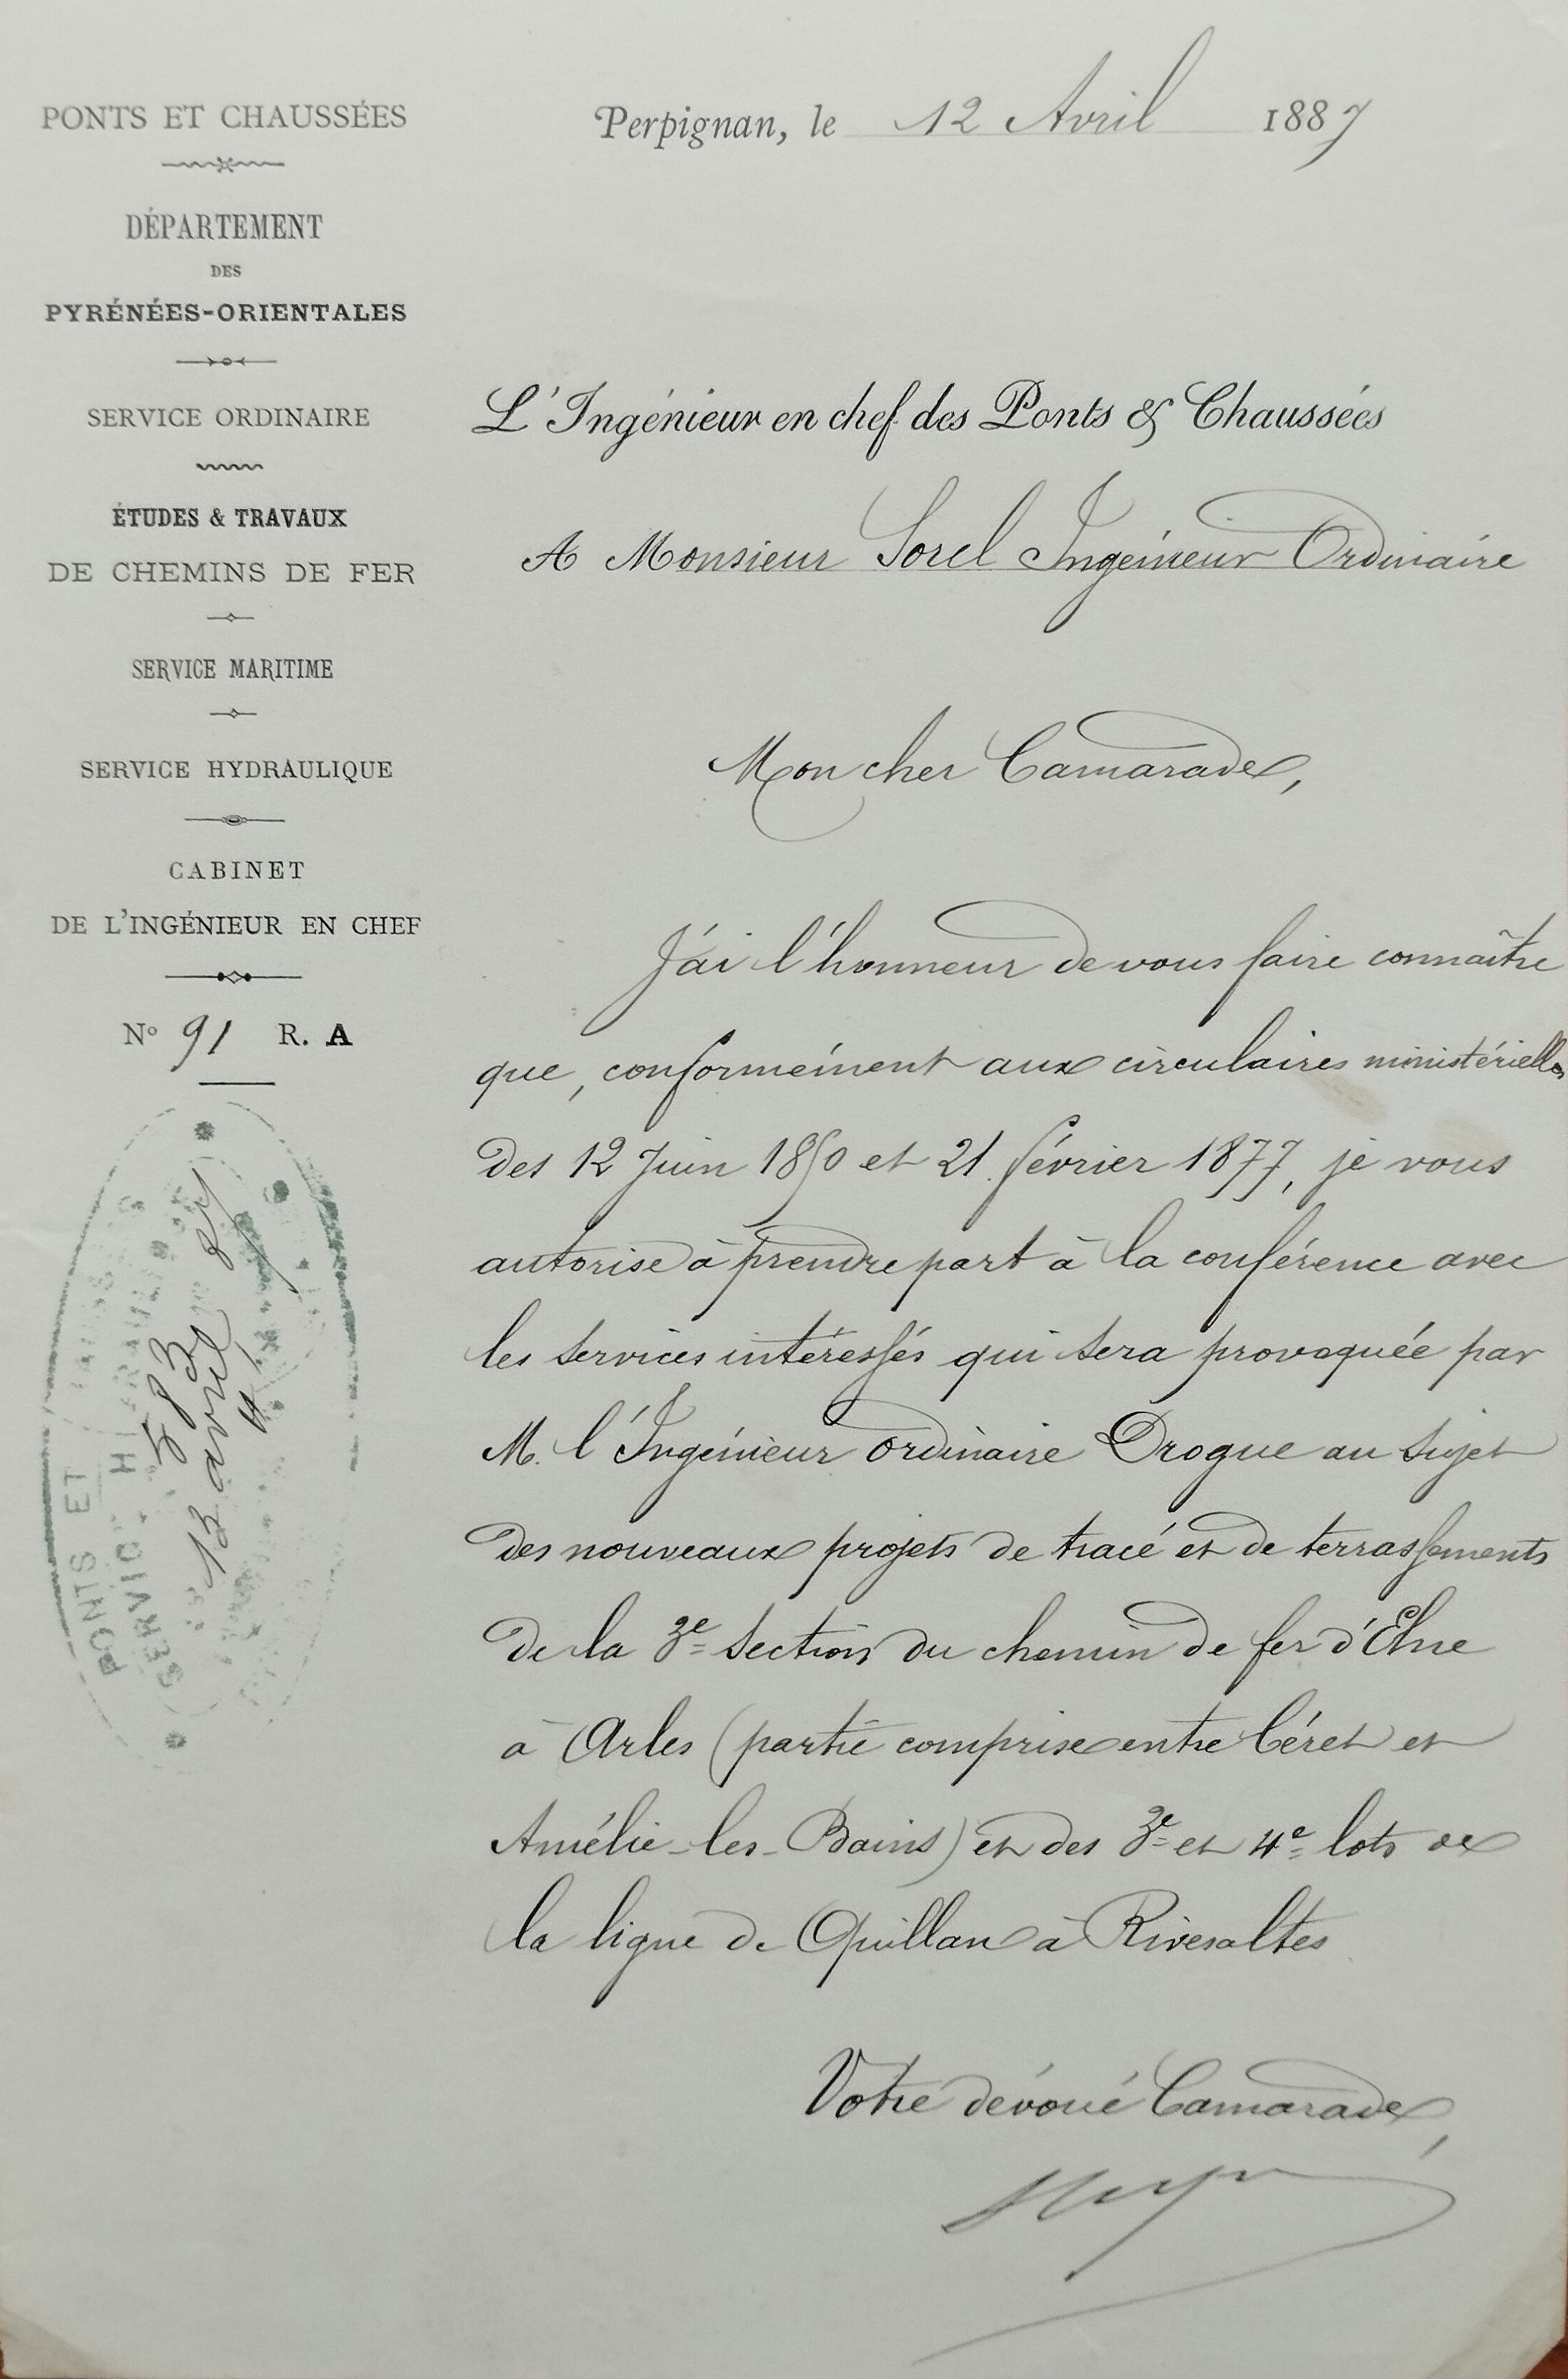 PONTS ET CHAUSSÉES
DÉPARTEMENT
DES
PYRÉNÉES-ORIENTALES
SERVICE ORDINAIRE
ÉTUDES & TRAVAUX
DE CHEMINS DE FER
SERVICE MARITIME
SERVICE HYDRAULIQUE
CABINET
DE L'INGÉNIEUR EN CHEF
No 91 R. A
PONTS ET
SERVICE H
583
13 avril 87
4
Perpignan, le 12 Avril 1887
L'Ingénieur en chef des Ponts & Chaussées
A Monsieur Sorel Ingénieur Ordinaire
Mon cher Camarade,
J'ai l'honneur de vous faire connaître
que, conformément aux circulaires ministérielles
des 12 Juin 1850 et 21 février 1877, je vous
autorise à prendre part à la conférence avec
les services intéressés qui sera provoquée par
M. l'Ingénieur ordinaire Drogue au sujet
des nouveaux projets de tracé et de terrassements
de la 3e section du chemin de fer d'Elne
à Arles (partie comprise entre Céret et
Amélie-les-Bains) et des 3e et 4e lots de
la ligne de Quillan à Rivesaltes
Votre dévoué Camarade,